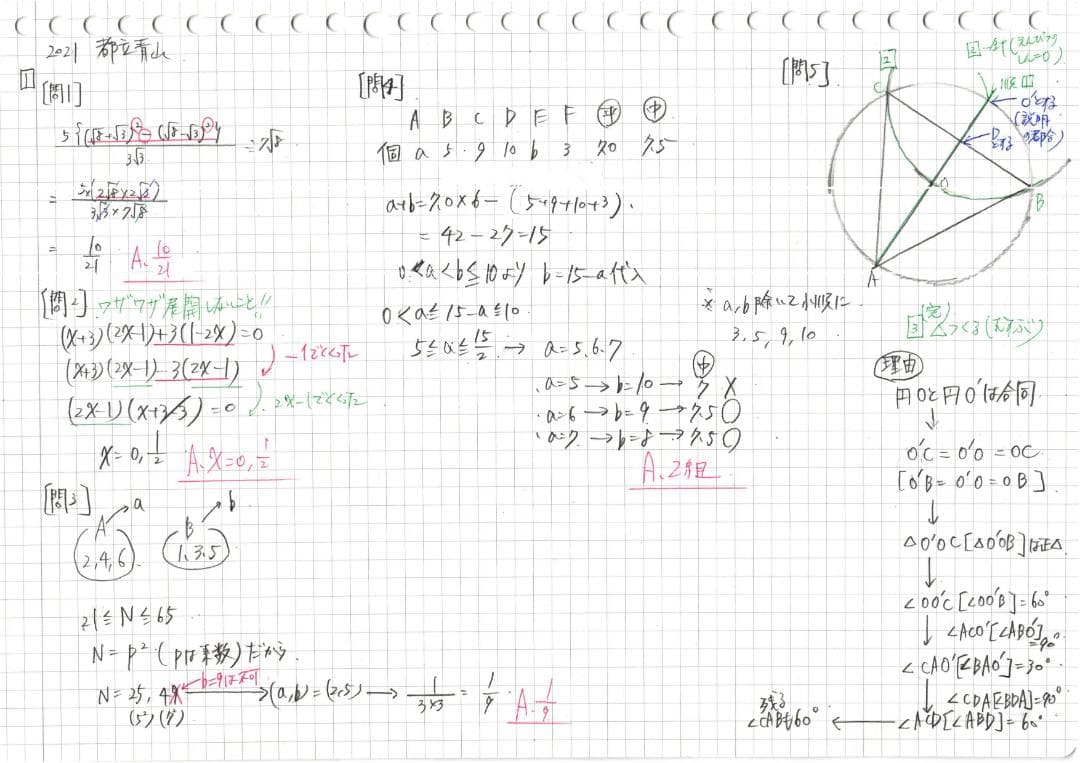 2021 都立青山
1
[問1]
5{(√8+√3)²−(√8−√3)²}
3√3
÷7√8
= 5×(2√8×2√3)
3√3×7√8
= 10
21
A. 10/21
[問2] ワザワザ展開しないこと!!
(x+3)(2x-1)+3(1-2x)=0
(x+3)(2x-1)-3(2x-1)
-1でくくった
(2x-1)(x+3-3)=0
2x-1でくくった
x=0, 1/2
A. x=0, 1/2
[問3]
A→a B→b
2,4,6 1,3,5
21≦N≦65
N=p²(pは素数)だから
N=25, 49
(5²)(7²)
b=9は不可
→(a,b)=(2,5)→ 1/(3×3) = 1/9
A. 1/9
[問4]
A B C D E F 平 中
個 a 5 9 10 b 3 7.0 7.5
a+b=7.0×6-(5+9+10+3).
=42-27=15
0<a<b≦10より b=15-a代入
0<a≦15-a≦10
5≦a≦15/2 → a=5.6.7
※a,b除いて小順に
3.5,9,10
中
・a=5→b=10→7 X
・a=6→b=9→7.5○
・a=7→b=8→7.5○
A. 2組
[問5]
2
C
順1
O'とする
(説明
の都合)
D
とする
O
B
A
3 (完)
△つくる(むすぶ)
理由
円Oと円O'は合同
↓
O'C=O'O=OC
[O'B=O'O=OB]
↓
△O'OC[△O'OB]は正△
↓
∠OO'C[∠OO'B]=60°
↓∠ACO'[∠ABO']
=90°
∠CAO'[∠BAO']=30°
↓∠CDA[∠BDA]=90°
∠ACD[∠ABD]=60°
←
残る
∠CABも60°